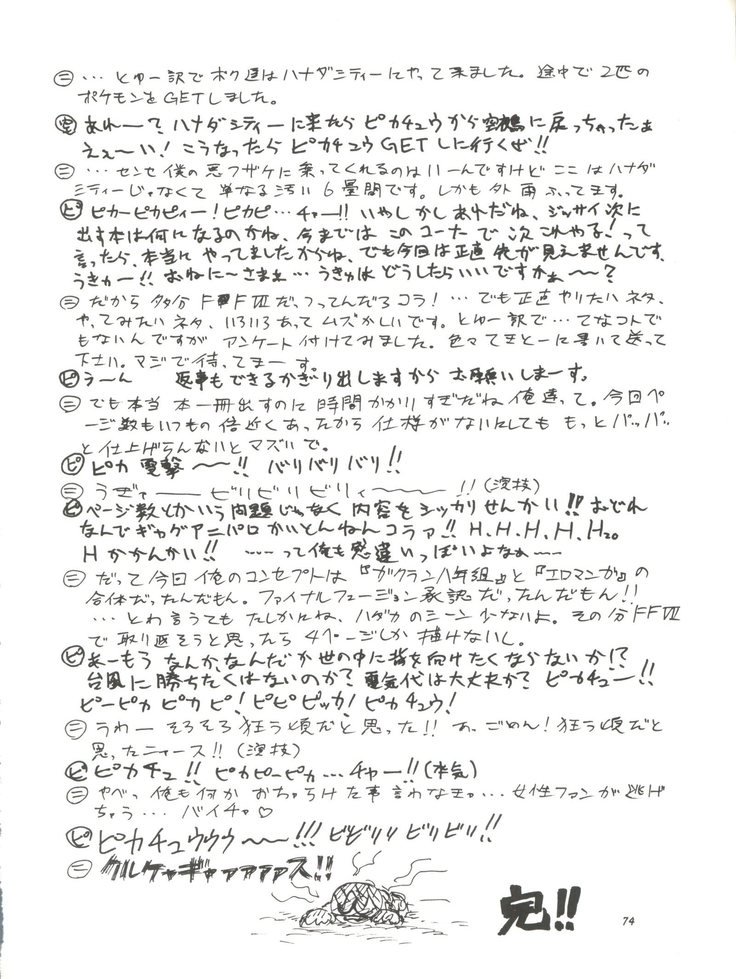 ㊁ … とゆー訳でボク達はハナダシティーにやって来ました。途中で2匹の
ポケモンをGETしました。
あれー? ハナダシティーに来たら ピカチュウから空鶴に戻っちゃったぁ
えぇ〜い! こうなったら ピカチュウGETしに行くぜ!!
㊁ … センセ僕の悪フザケに乗ってくれるのはいーんですけど ここはハナダ
シティーじゃなくて 単なる汚い6畳間です。しかも外雨ふってます。
ピ ピカーピカピィー! ピカピ…チャー!! いやしかしあれだね、ジッサイ次に
出す本は何になるのかね、今までは このコーナで 次これやる! って
言ったら、本当に やってましたからね、でも今日は正直 先が見えませんです、
うきゃー!! おねに〜さまぇ… うきゅは どうしたらいいですかぁ〜〜?
㊁ だから 多分 FFⅦだってってんだろコラ! … でも正直やりたいネタ、
やってみたいネタ、いろいろあってムズかしいです。とゆー訳で…てなコトで
もないんですが アンケート付けてみました。色々てきとーに書いて送って
下さい。マジで待ってまーす。
ピ うーん 返事もできるかぎり出しますから お願いしまーす。
㊁ でも本当 本一冊出すのに 時間かかりすぎだね 俺達って。今回ペ
ージ数もいつもの倍近くあったから仕様がないにしても もっとパッパッ
と仕上げらんないとマズいで。
ピ ピカ 電撃 〜〜!! バリバリバリ!!
㊁ うぎゃー ビリビリビリィ〜〜〜 !! (演技)
ピ ページ数とかいう問題じゃなく内容をシッカリせんかい!! おどれ
なんでギャグアニパロ かいとんねんコラァ!! H、H、H、H、H₂O
Hかかんかい!! 〜〜って俺も勘違いっぽいよなぁ〜〜
㊁ だって今回 俺のコンセプトは『ガクラン八年組』と『エロマンガ』の
合体だったんだもん。ファイナルフュージョン承認だったんだもん!!
… とわ言うても たしかにね、ハダカのシーン少ないよ。その分FFⅦ
で取り返そうと思ったら4ページしか描けないし。
ピ あーもう なんかなんだか世の中に背を向けたくならないか!?
台風に勝ちたくはないのか? 電気代は大丈夫か? ピカチュー!!
ピーピカ ピカピ! ピピピッカ! ピカチュウ!
㊁ うわー そろそろ狂う頃だと思った!! あ、ごめん! 狂う頃だと
思ったニャース!! (演技)
ピ ピカチュ!! ピカピーピカ…チャー!! (本気)
㊁ やべっ 俺も何かおちゃらけた事言わなきゃ… 女性ファンが逃げ
ちゃう… バイチャ♡
ピ ピカチュウウウ〜〜!!! ビビリリビリビリ!!
㊁ クルケャギャァァァァス!!
完!!
74